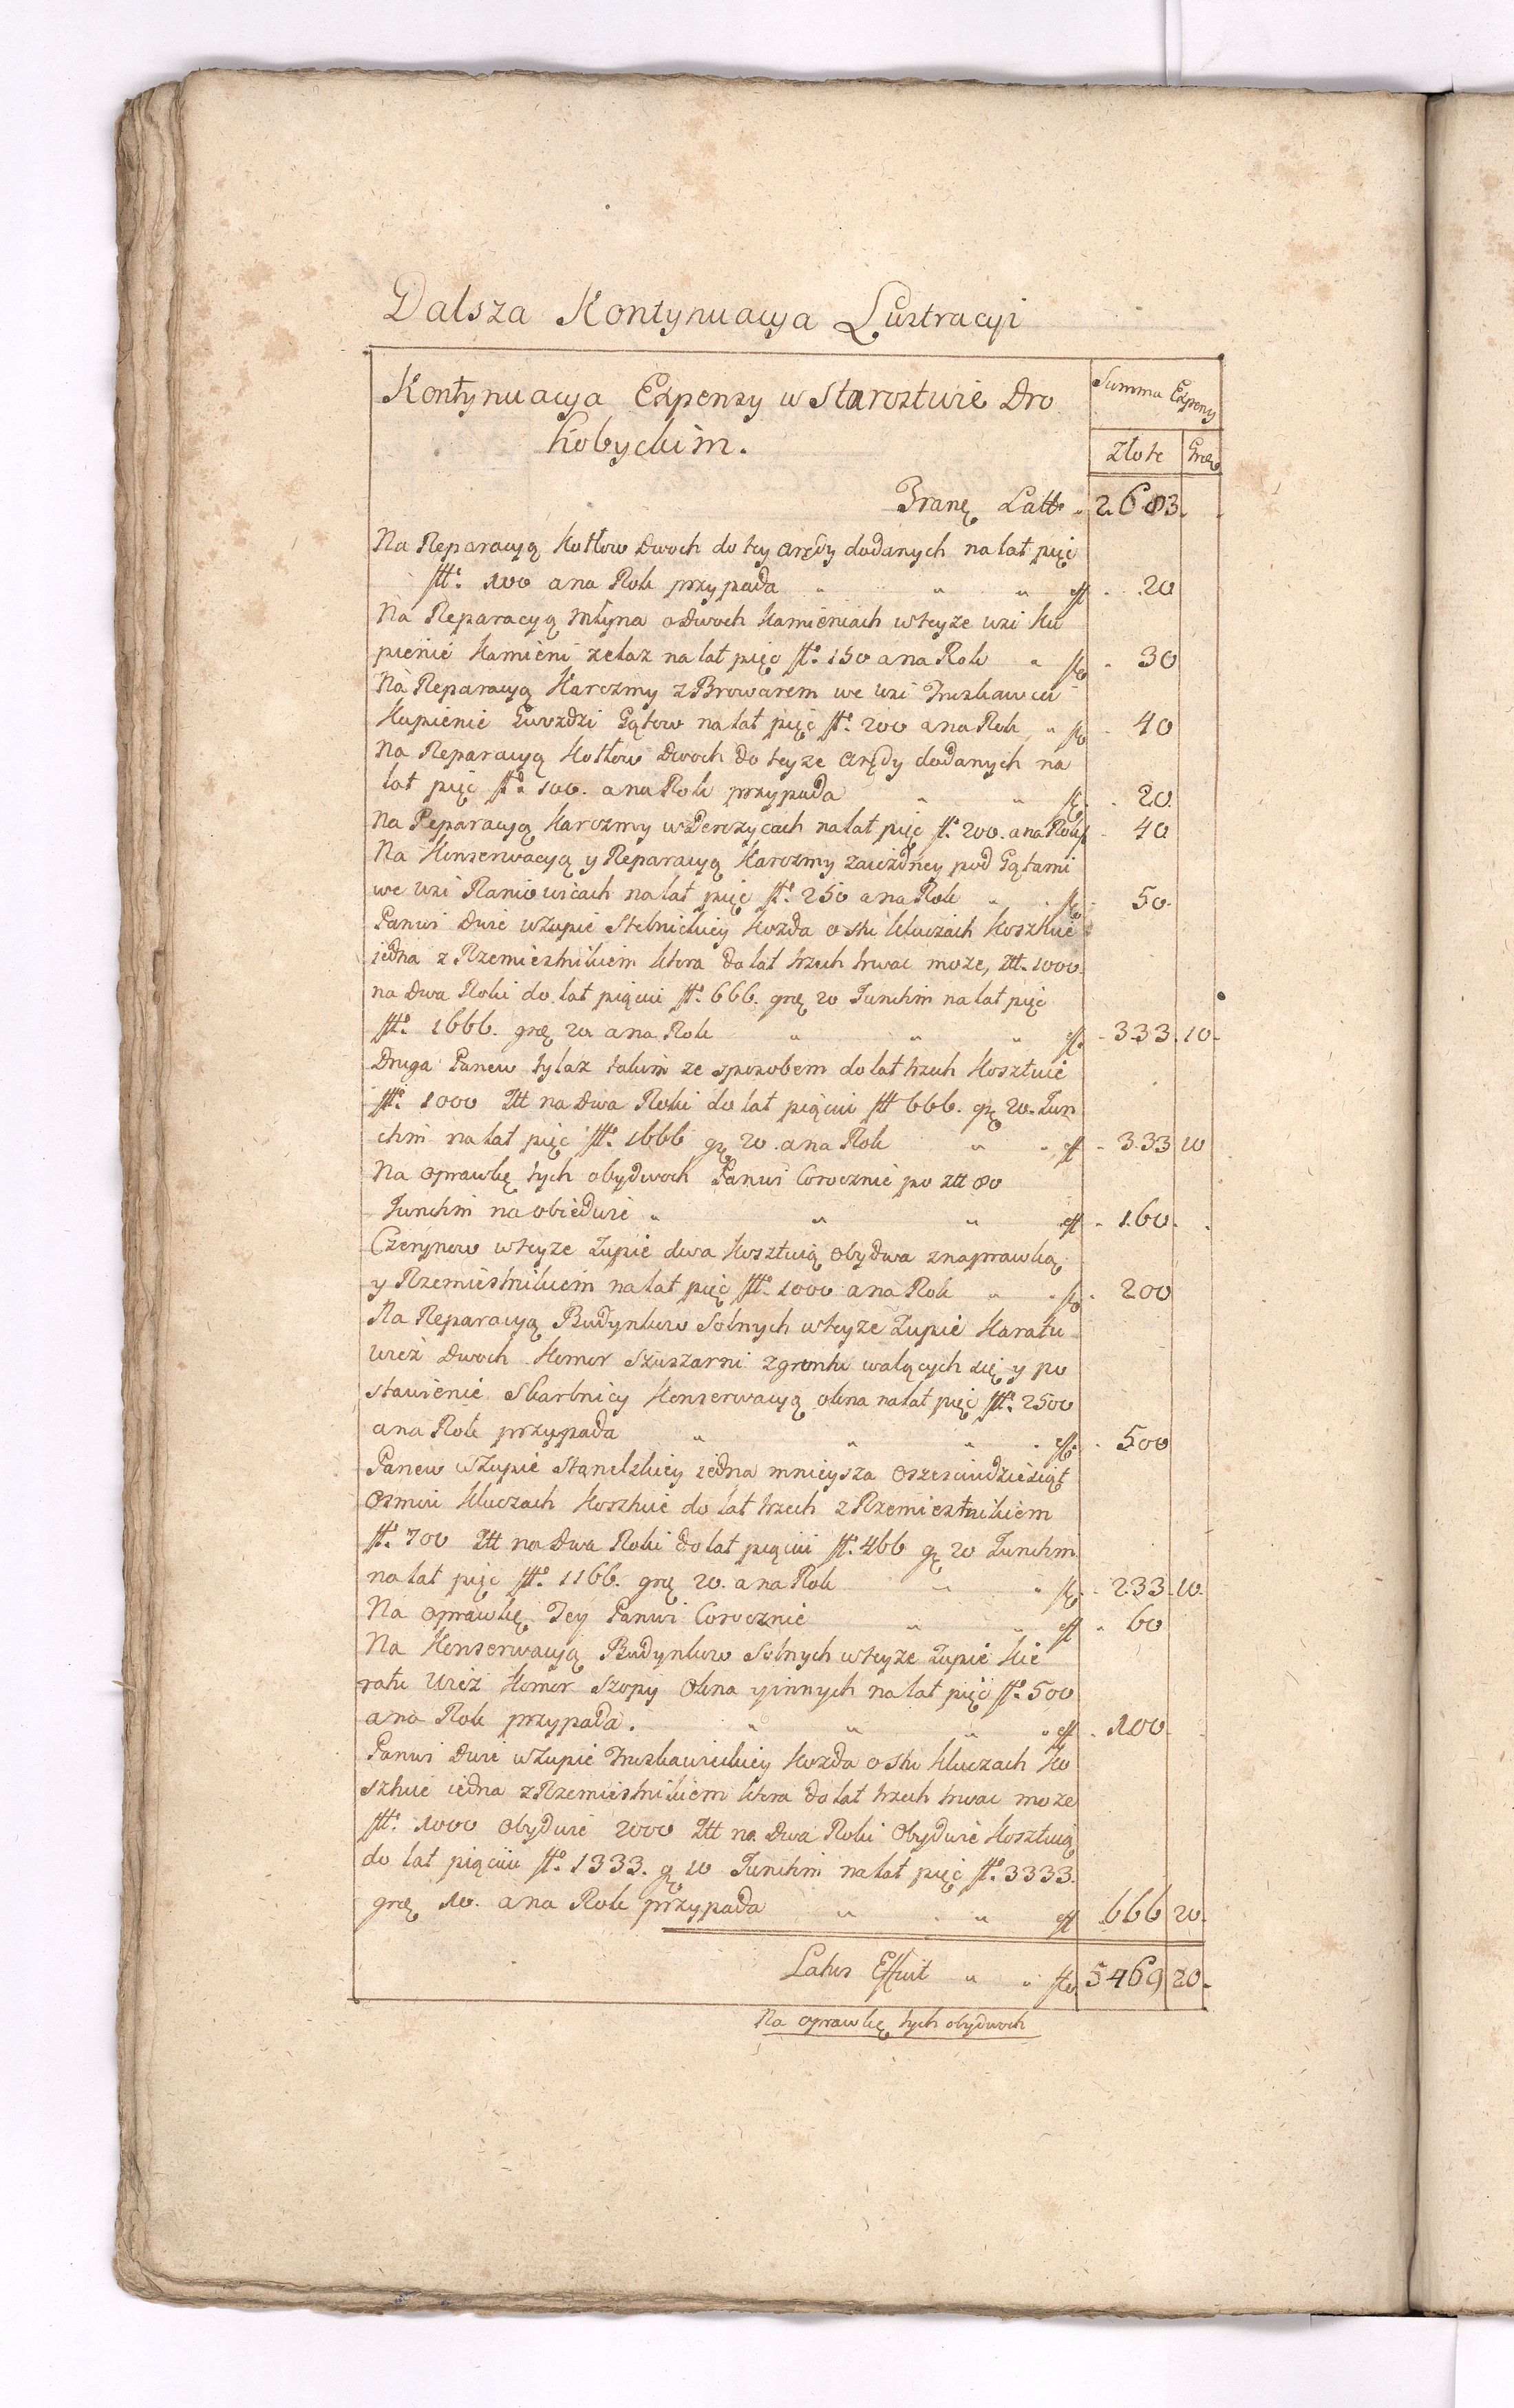 Dalsza Kontynuacya Lustracyi
Kontynuacya Expensy w Starostwie Dro
hobyckim.
Summa Expensy
Złote Grosz
Transz Latt 2683.
Na Reparacyą Kotłow Dwoch do tey Arędy dodanych na lat pięć
fltt. 100 a na Rok przypada " " " eff 20
Na Reparacyą Młyna o Dwoch Kamieniach w teyze wsi Ku
pienie Kamieni zelaz na lat pięć flt. 150 a na Rok " 30
Na Reparacyą Karczmy z Browarem we wsi Truskawcu
Kupienie Gwozdzi Gątow na lat pięć flt. 200 a na Rok " 40
Na Reparacyą Kotłow Dwoch do teyze Arędy dodanych na
lat pięć flt. 100. a na Rok przypada " " 20
Na Reparacyą Karczmy w Derezycach na lat pięć flt. 200. a na Rok 40
Na Konserwacyą y Reparacyą Karczmy zaiezdney pod Gątami
we wsi Raniowicach na lat pięć flt. 250 a na Rok " 50
Panwi Dwie w Zupie Stebnickiey Kozda o stu Kluczach Kosztuie
iedna z Rzemiesnikiem ktora do lat trzech trwac moze, Ztt. 1000.
na Dwa Roki do lat pięciu fltt. 666. grz 20 Junctim na lat pięć
fltt. 1666. grz 20. a na Rok " " " 333. 10
Druga Panew tylaz takim ze sposobem do lat trzech Kosztuie
fltt. 1000 Ztt na Dwa Roki do lat pięciu fltt 666. gz 20. Jun
ctim na lat pięć fltt. 1666 gz 20. a na Rok " " eff 333 10
Na oprawkę tych obydwoch Panwi Corocznie po ztt 80
Junctim na obiedwie " " " eff 160.
Czerynow w teyze Zupie dwa Kosztuią obydwa z naprawką
y Rzemiesnikiem na lat pięć fltt. 1000 a na Rok " 200
Na Reparacyą Budynkow Solnych w teyze Zupie Karatu
Wiez Dwoch Komor Szuszarni z gruntu walących się y po
stawienie Skarbnicy Konserwacyą okna na lat pięć fltt. 2500
a na Rok przypada " " " 500
Panew w Zupie Stanelskiey iedna mnieysza o szescindziesiąt
Osmiu Kluczach Kosztuie do lat trzech z Rzemiesnikiem
flt. 700 Ztt na Dwa Roki do lat pięciu flt. 466 gz 20 Junctim
na lat pięć fltt. 1166. grz 20. a na Rok " " 233. 10.
Na oprawkę Tey Panwi Corocznie " " eff 60
Na Konserwacyą Budynkow Solnych w teyze Zupie Kie
ratu Wiez Komor Szopy Okna y innych na lat pięć flt. 500
a na Rok przypada. " " " " eff 100
Panwi Dwie w Zupie Truskawieckiey Kozda o stu Kluczach Ko
sztuie iedna z Rzemiesnikiem ktora do lat trzech trwac moze
fltt. 1000 Obydwie 2000 Ztt na Dwa Roki Obydwie Kosztuią
do lat pięciu flt. 1333. gz 10 Junctim na lat pięć flt. 3333.
grz 10. a na Rok przypada " " eff 666 20.
Latus Effuit " " 5469 20.
Na oprawkę tych obydwoch